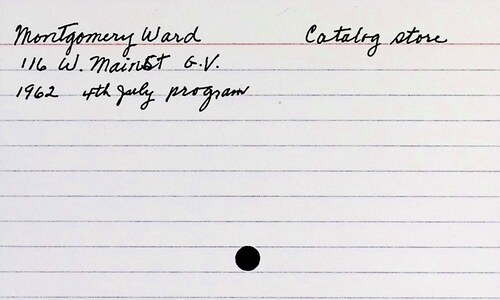 Montgomery Ward Catalog store
116 W. Main St G.V.
1962 4th July program